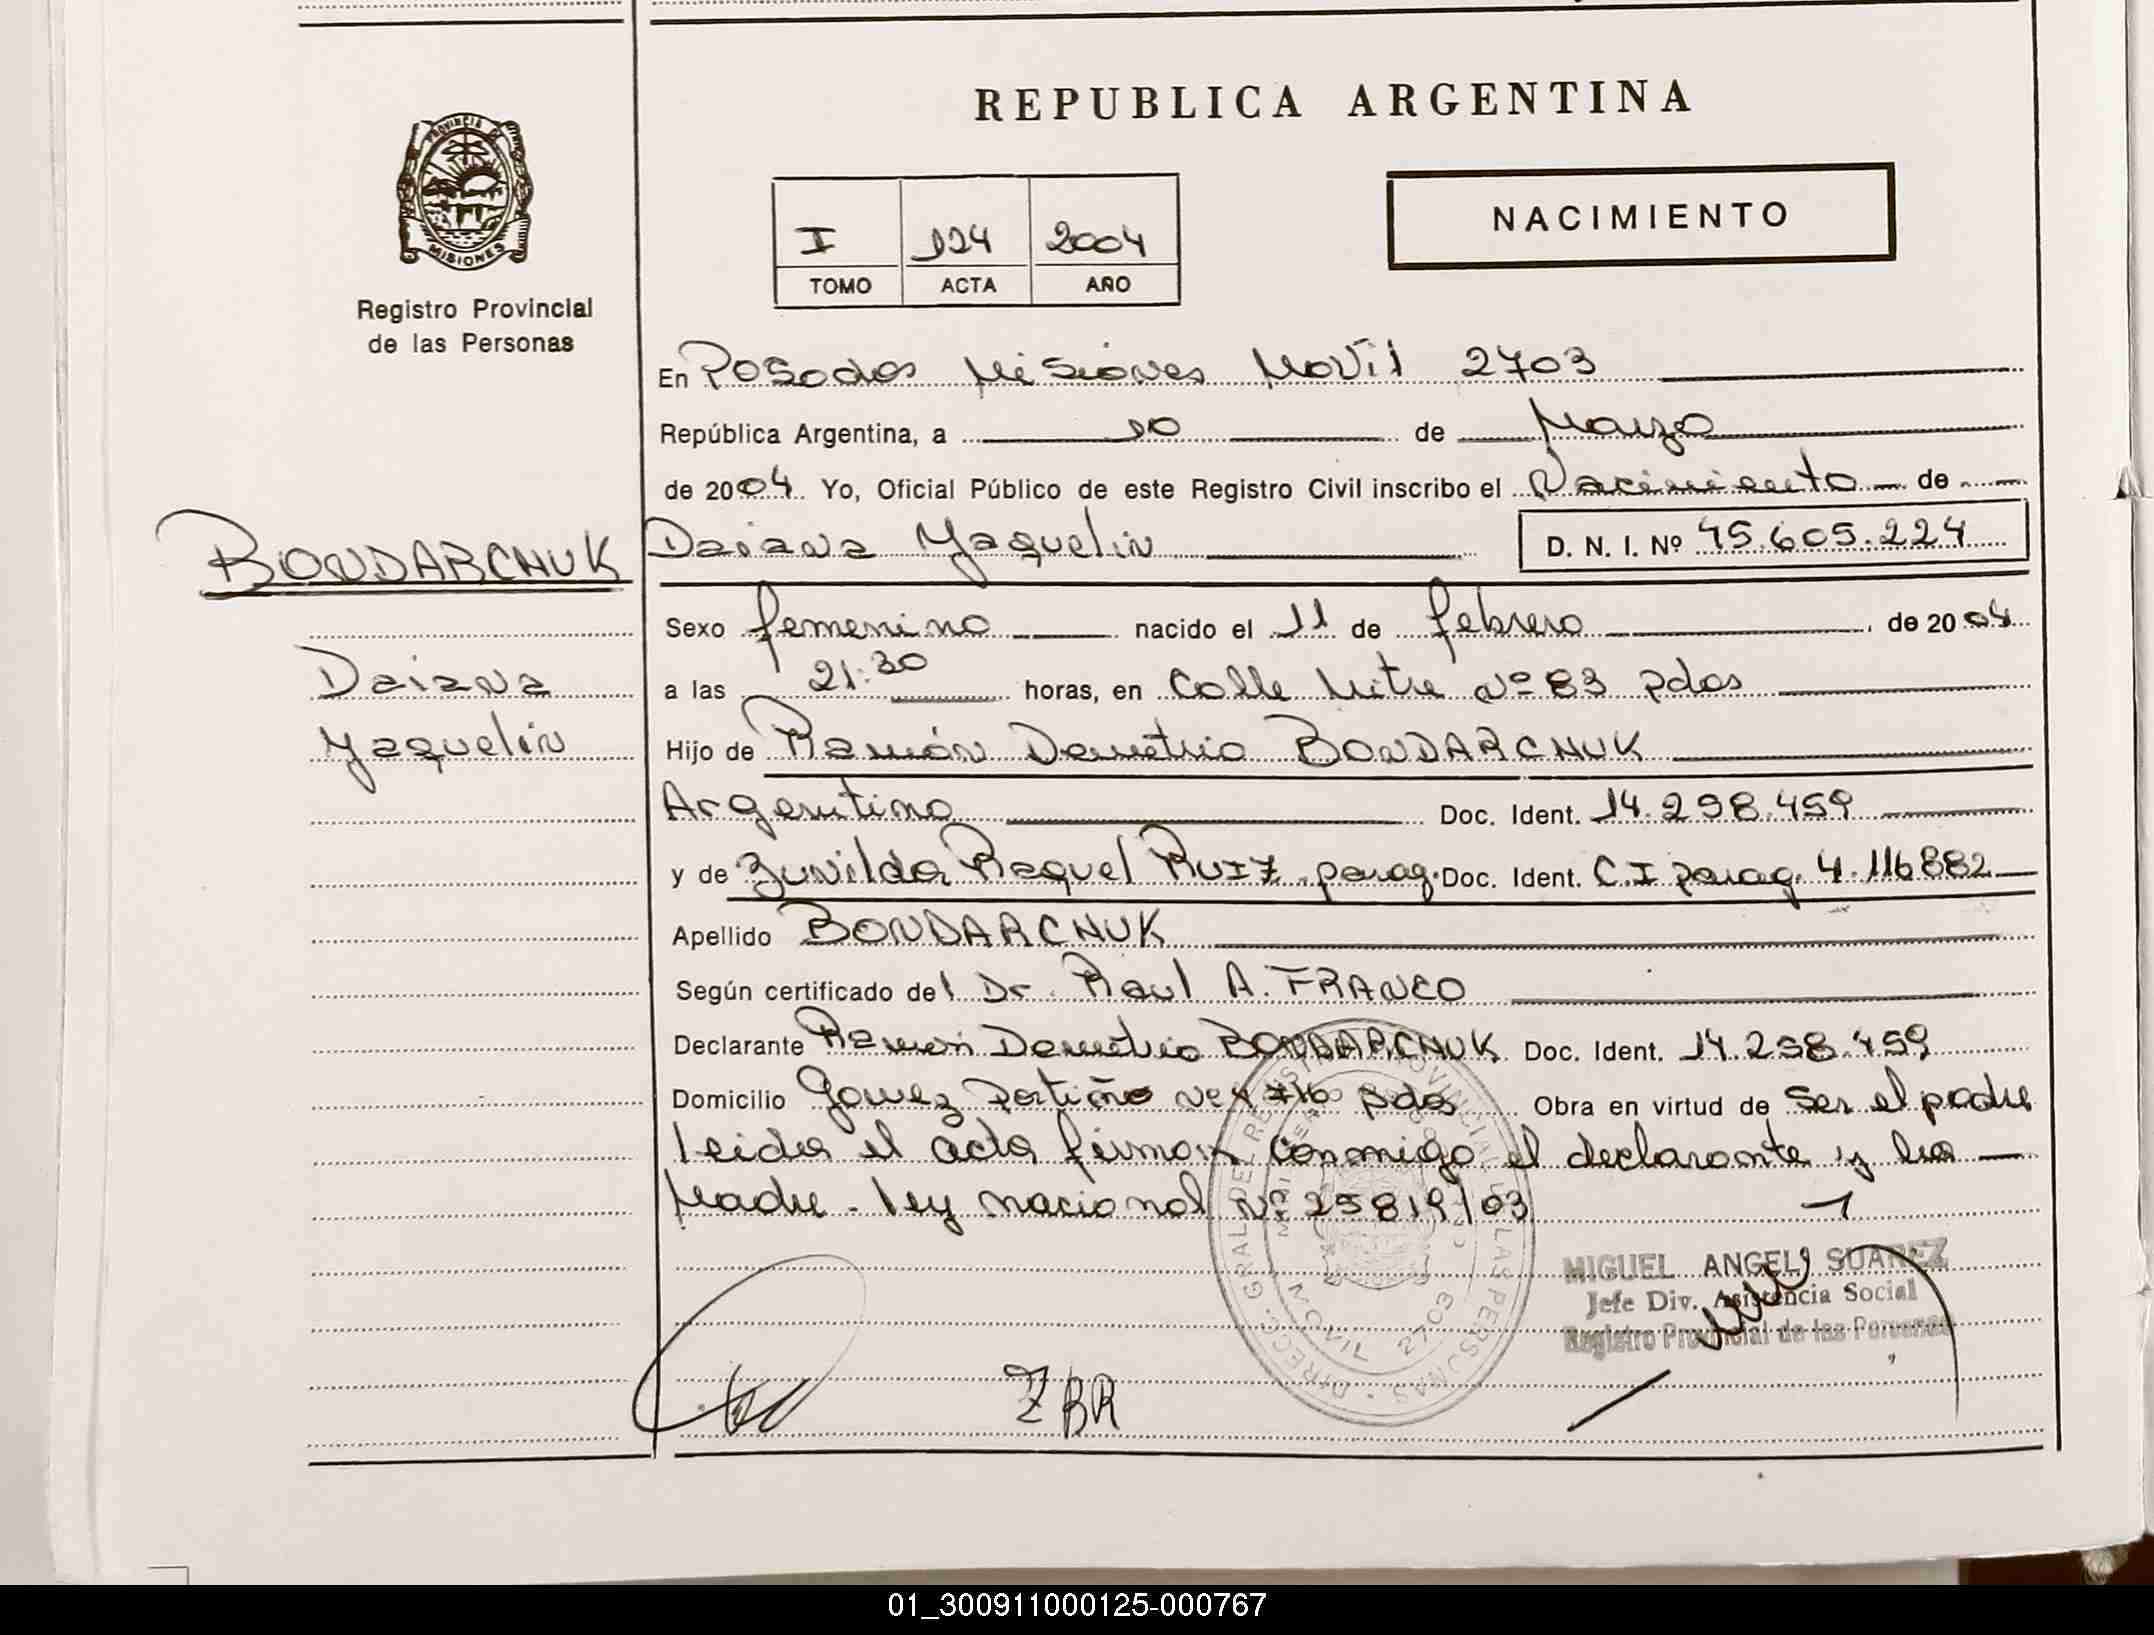 PROVINCIA DE
MISIONES
Registro Provincial
de las Personas
REPUBLICA ARGENTINA
NACIMIENTO
I 124 2004
TOMO ACTA AÑO
En Posadas Misiones Movil 2703
República Argentina, a 10 de Marzo
de 2004 Yo, Oficial Público de este Registro Civil inscribo el Nacimiento de
BONDARCHUK Daiana Yaquelin D. N. I. Nº 45.605.224
Sexo femenino nacido el 11 de febrero de 2004
Daiana
a las 21:30 horas, en Calle Mitre Nº 83 pdas
Yaquelin
Hijo de Ramón Demetrio BONDARCHUK
Argentino Doc. Ident. 14.298.459
y de Zunilda Raquel RUIZ parag. Doc. Ident. C I parag. 4.116882
Apellido BONDARCHUK
Según certificado del Dr. Raul A. FRANCO
Declarante Ramon Demetrio BONDARCHUK Doc. Ident. 14.298.459
Domicilio Gomez Portiño 716 pdas Obra en virtud de ser el padre
leida el acta firman conmigo el declarante y la
Madre. ley nacional Nº 25819/03
MIGUEL ANGEL SUAREZ
Jefe Div. Asistencia Social
Registro Provincial de las Personas
DIRECC. GRAL DE REGISTRO PROVINCIAL DE LAS PERSONAS
MOVIL 2703
ZBR
01_300911000125-000767